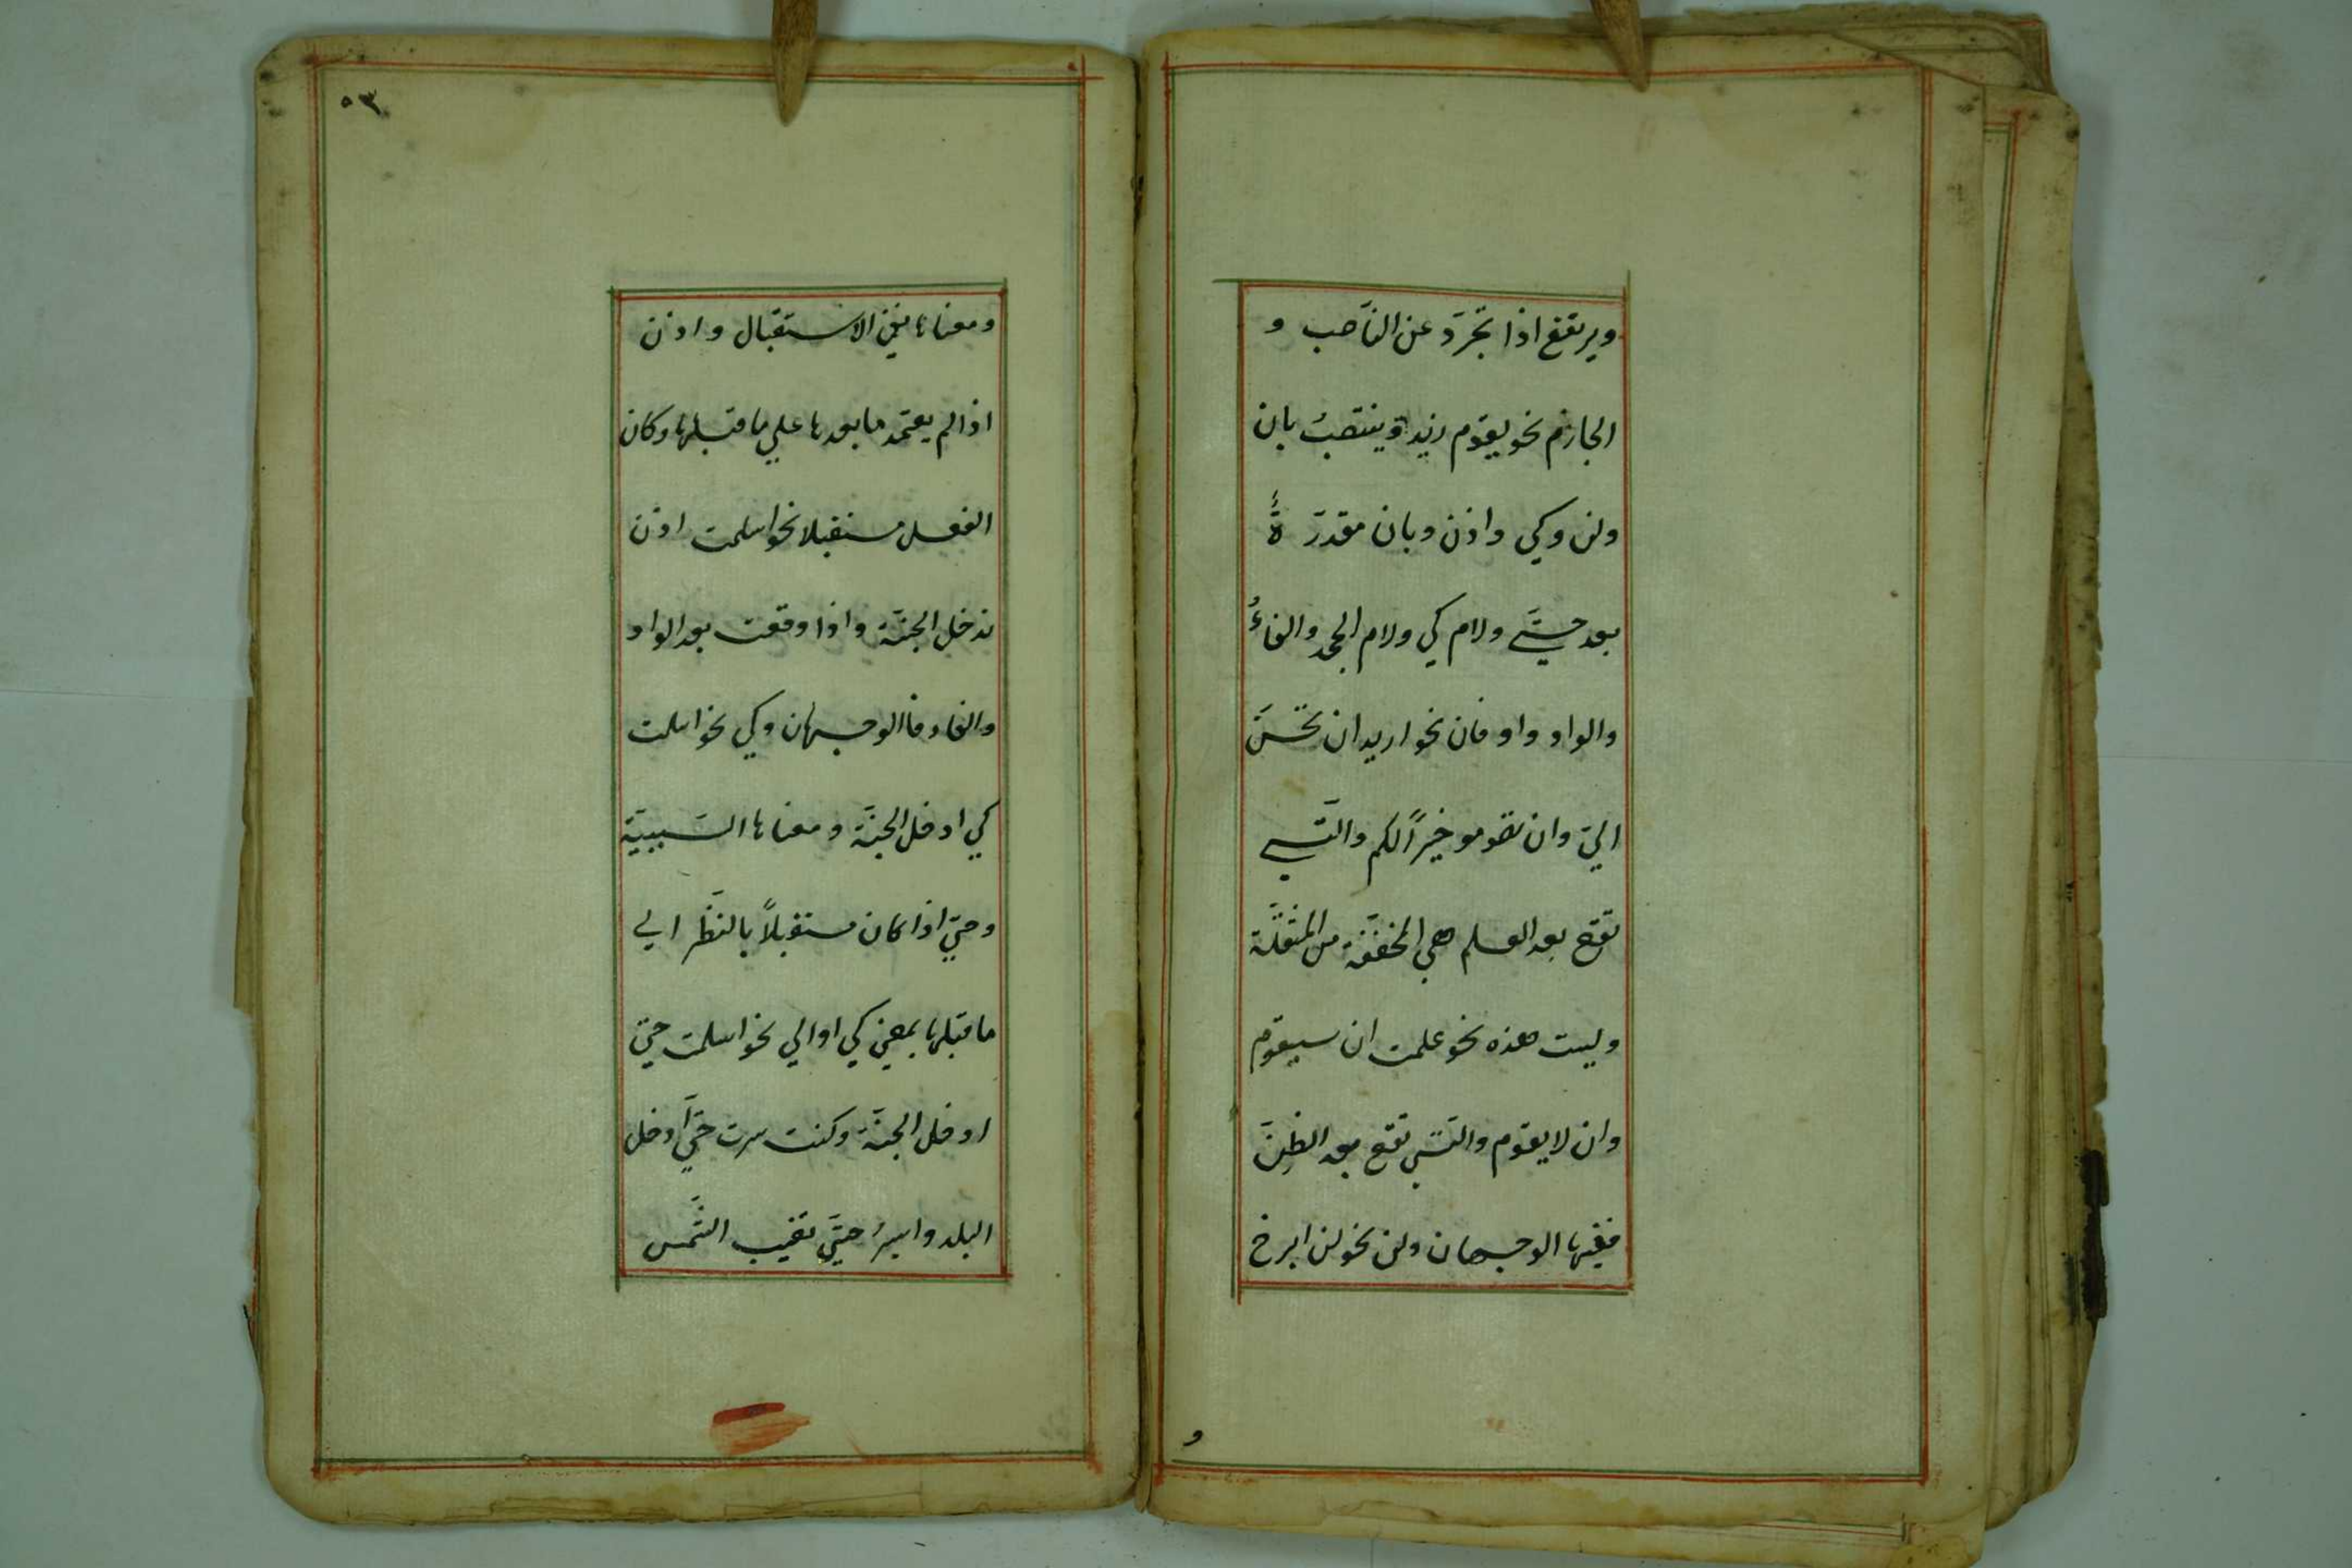 ويرتفع اذا تجرّد عن النّاصب و
الجازم نحو يقوم زيد وينتصب بان
ولن وكي واذن وبان مقدرَ ةً
بعد حتّے ولام كي ولام الجحد والفاءُ
والواو واو فان نحو اريد ان تحسنَ
اليّ وان تصومو خيراً لكم والتّے
تقع بعد العلم هي المخفّفة من المثقّلة
وليست هذه نحو علمت ان سيقوم
وان لا يقوم والتّي تقع بعد الظنّ
ففيها الوجهان ولن نحو لن ابرح
و
٥٣
ومعناها نفي الاستقبال واذن
اذا لم يعتمد ما بعدها علي ما قبلها وكان
الفعل مستقبلا نحو اسلمت اذن
تدخل الجنّة واذا وقعت بعد الواو
والفاء فالوجهان وكي نحو اسلمت
كي ادخل الجنّة ومعناها السّببيّة
وحتيّ اذا كان مستقبلاً بالنّظر الے
ما قبلها بمعني كي او الي نحو اسلمت حتيّ
ادخل الجنّة وكنت سرت حتيّ ادخل
البلد واسيرُ حتيّ تغيب الشّمس